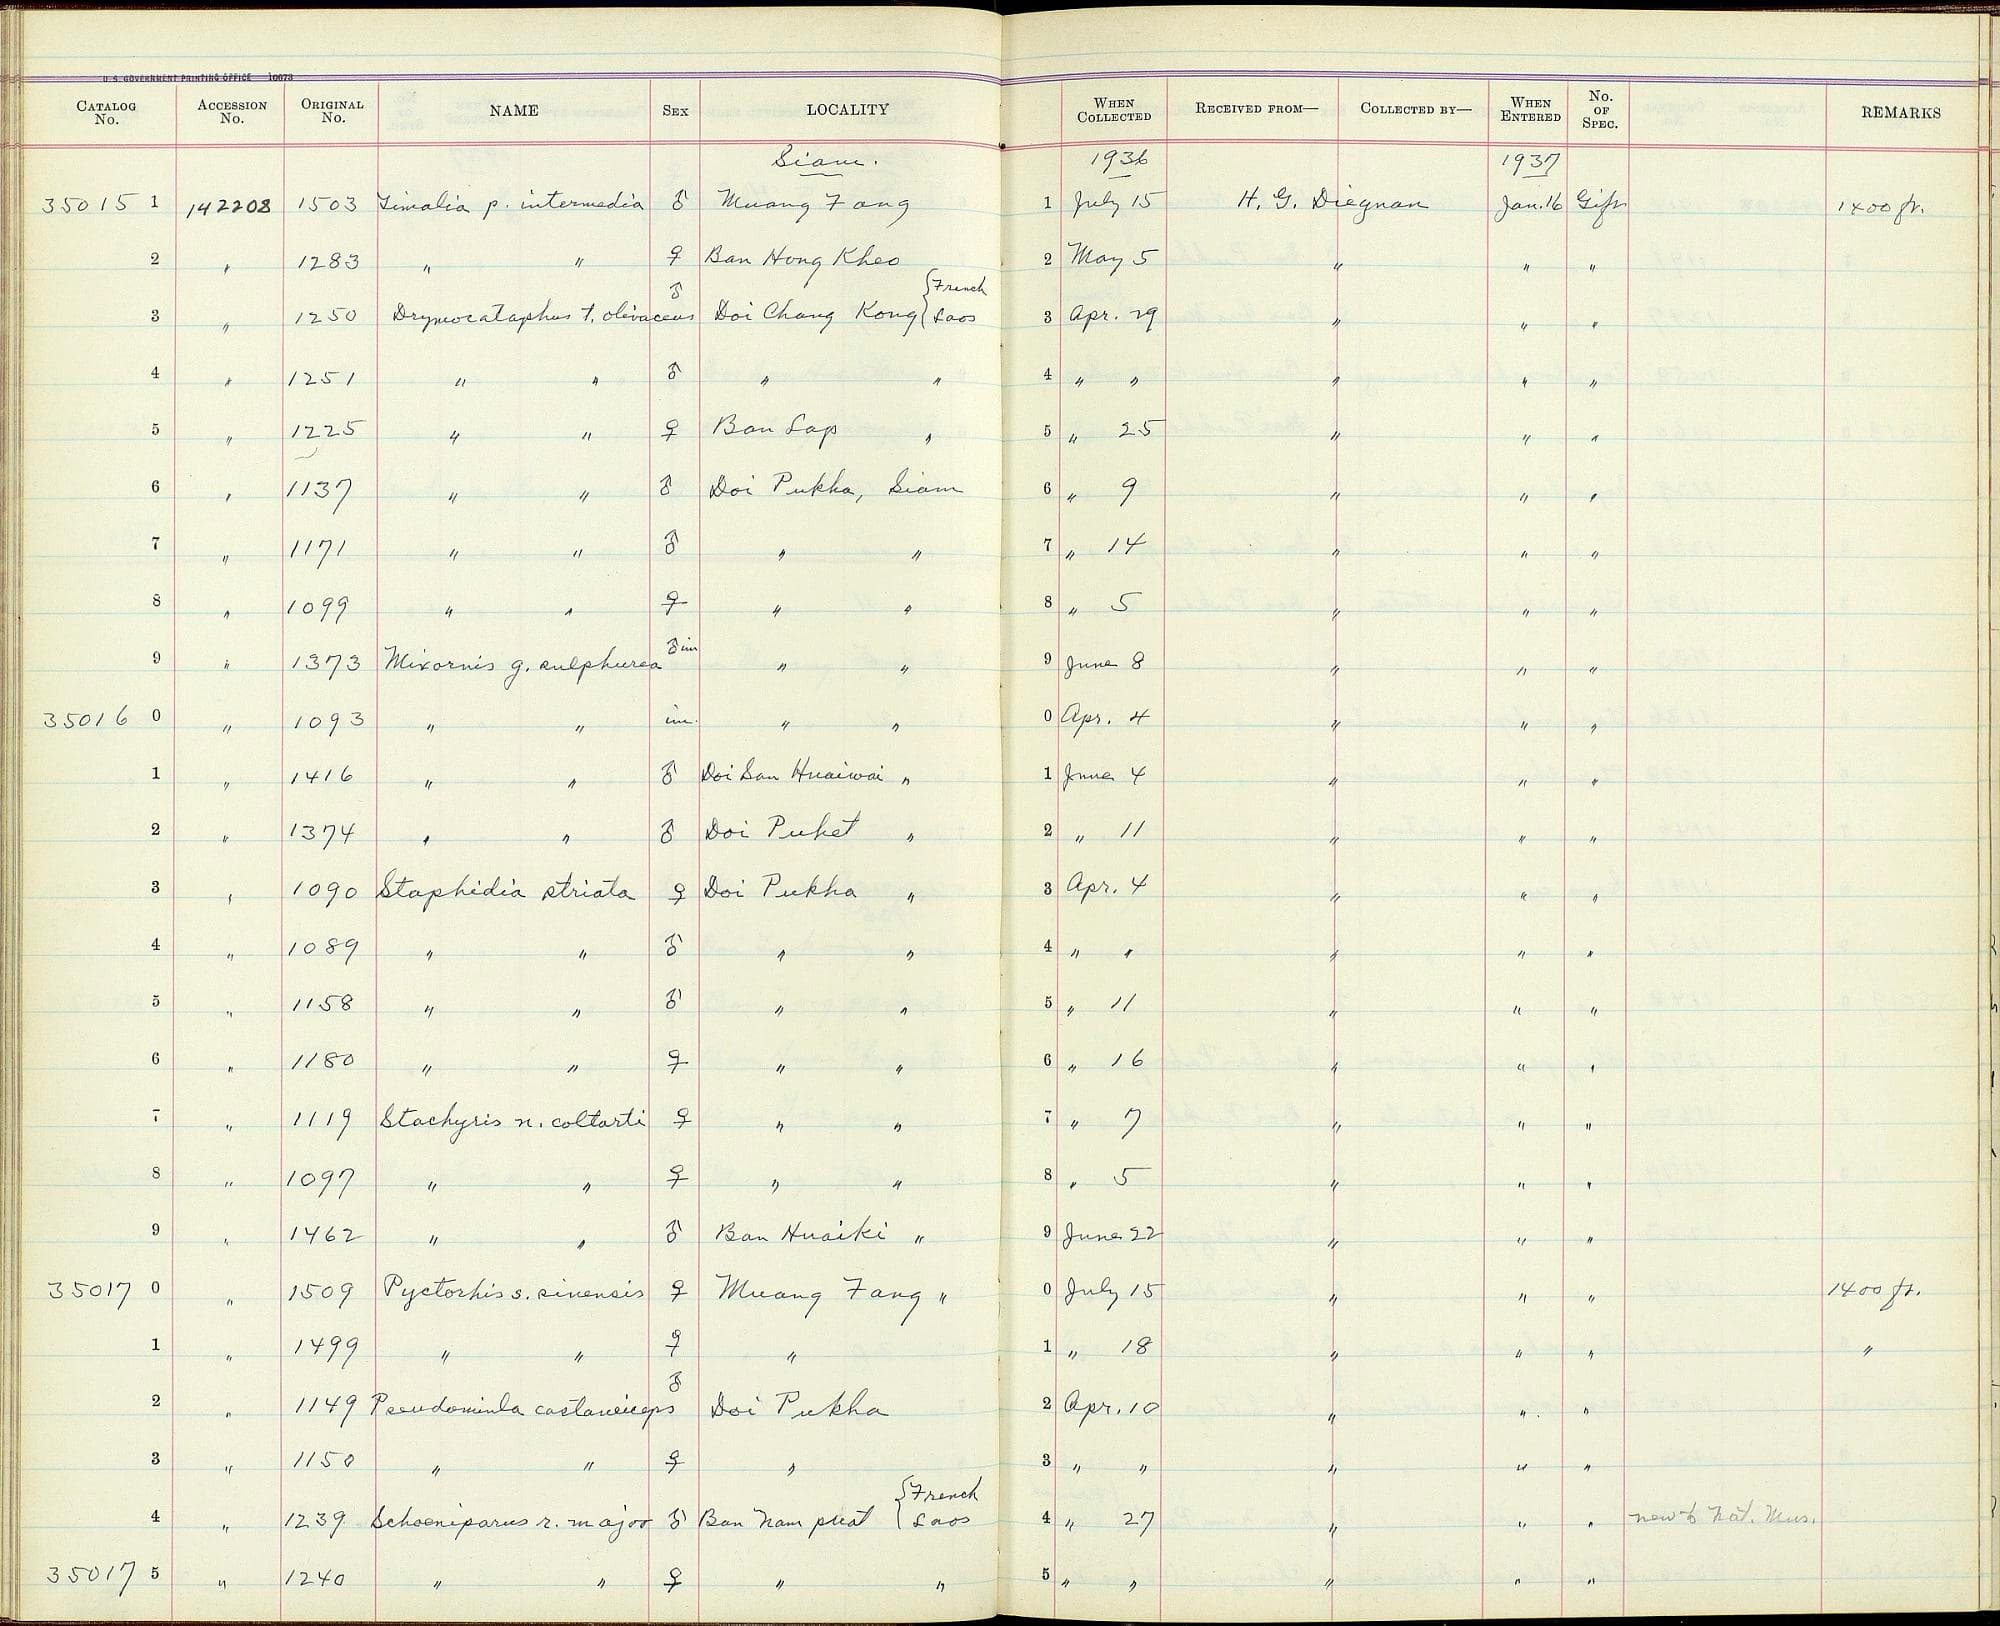 U. S. GOVERNMENT PRINTING OFFICE 10673
CATALOG No. ACCESSION No. ORIGINAL No. NAME SEX LOCALITY WHEN COLLECTED RECEIVED FROM— COLLECTED BY— WHEN ENTERED No. OF SPEC. REMARKS
Siam. 1936 1937
35015 1 142208 1503 Timalia p. intermedia ♂ Muang Fang 1 July 15 H. G. Diegnan Jan. 16 Gift 1400 ft.
2 " 1283 " " ♀ Ban Hong Kheo 2 May 5 " " "
3 " 1250 Drymocataphus t. olivaceus ♂ Doi Chang Kong { French Laos 3 Apr. 29 " " "
4 " 1251 " " ♂ " " 4 " " " " "
5 " 1225 " " ♀ Ban Lap " 5 " 25 " " "
6 " 1137 " " ♂ Doi Pukha, Siam 6 " 9 " " "
7 " 1171 " " ♂ " " 7 " 14 " " "
8 " 1099 " " ♀ " " 8 " 5 " " "
9 " 1373 Mixornis g. sulphurea ♂ im " " 9 June 8 " " "
35016 0 " 1093 " " im. " " 0 Apr. 4 " " "
1 " 1416 " " ♂ Doi San Huaiwai " 1 June 4 " " "
2 " 1374 " " ♂ Doi Puket " 2 " 11 " " "
3 " 1090 Staphidia striata ♀ Doi Pukha " 3 Apr. 4 " " "
4 " 1089 " " ♂ " " 4 " " " " "
5 " 1158 " " ♂ " " 5 " 11 " " "
6 " 1180 " " ♀ " " 6 " 16 " " "
7 " 1119 Stachyris n. coltarti ♀ " " 7 " 7 " " "
8 " 1097 " " ♀ " " 8 " 5 " " "
9 " 1462 " " ♂ Ban Huaiki " 9 June 22 " " "
35017 0 " 1509 Pyctorhis s. sinensis ♀ Muang Fang " 0 July 15 " " " 1400 ft.
1 " 1499 " " ♀ " 1 " 18 " " " "
2 " 1149 Pseudominla castaneiceps ♂ Doi Pukha 2 Apr. 10 " " "
3 " 1150 " " ♀ " 3 " " " " "
4 " 1239 Schoeniparus r. major ♂ Ban Nam phat { French Laos 4 " 27 " " " new to Nat. Mus.
35017 5 " 1240 " " ♀ " " 5 " " " " "